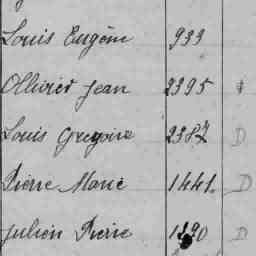 Louis Eugène 933
Ollivier Jean 2395
Louis Gregoire 2387 D
Pierre Marie 1441. D
Julien Pierre D